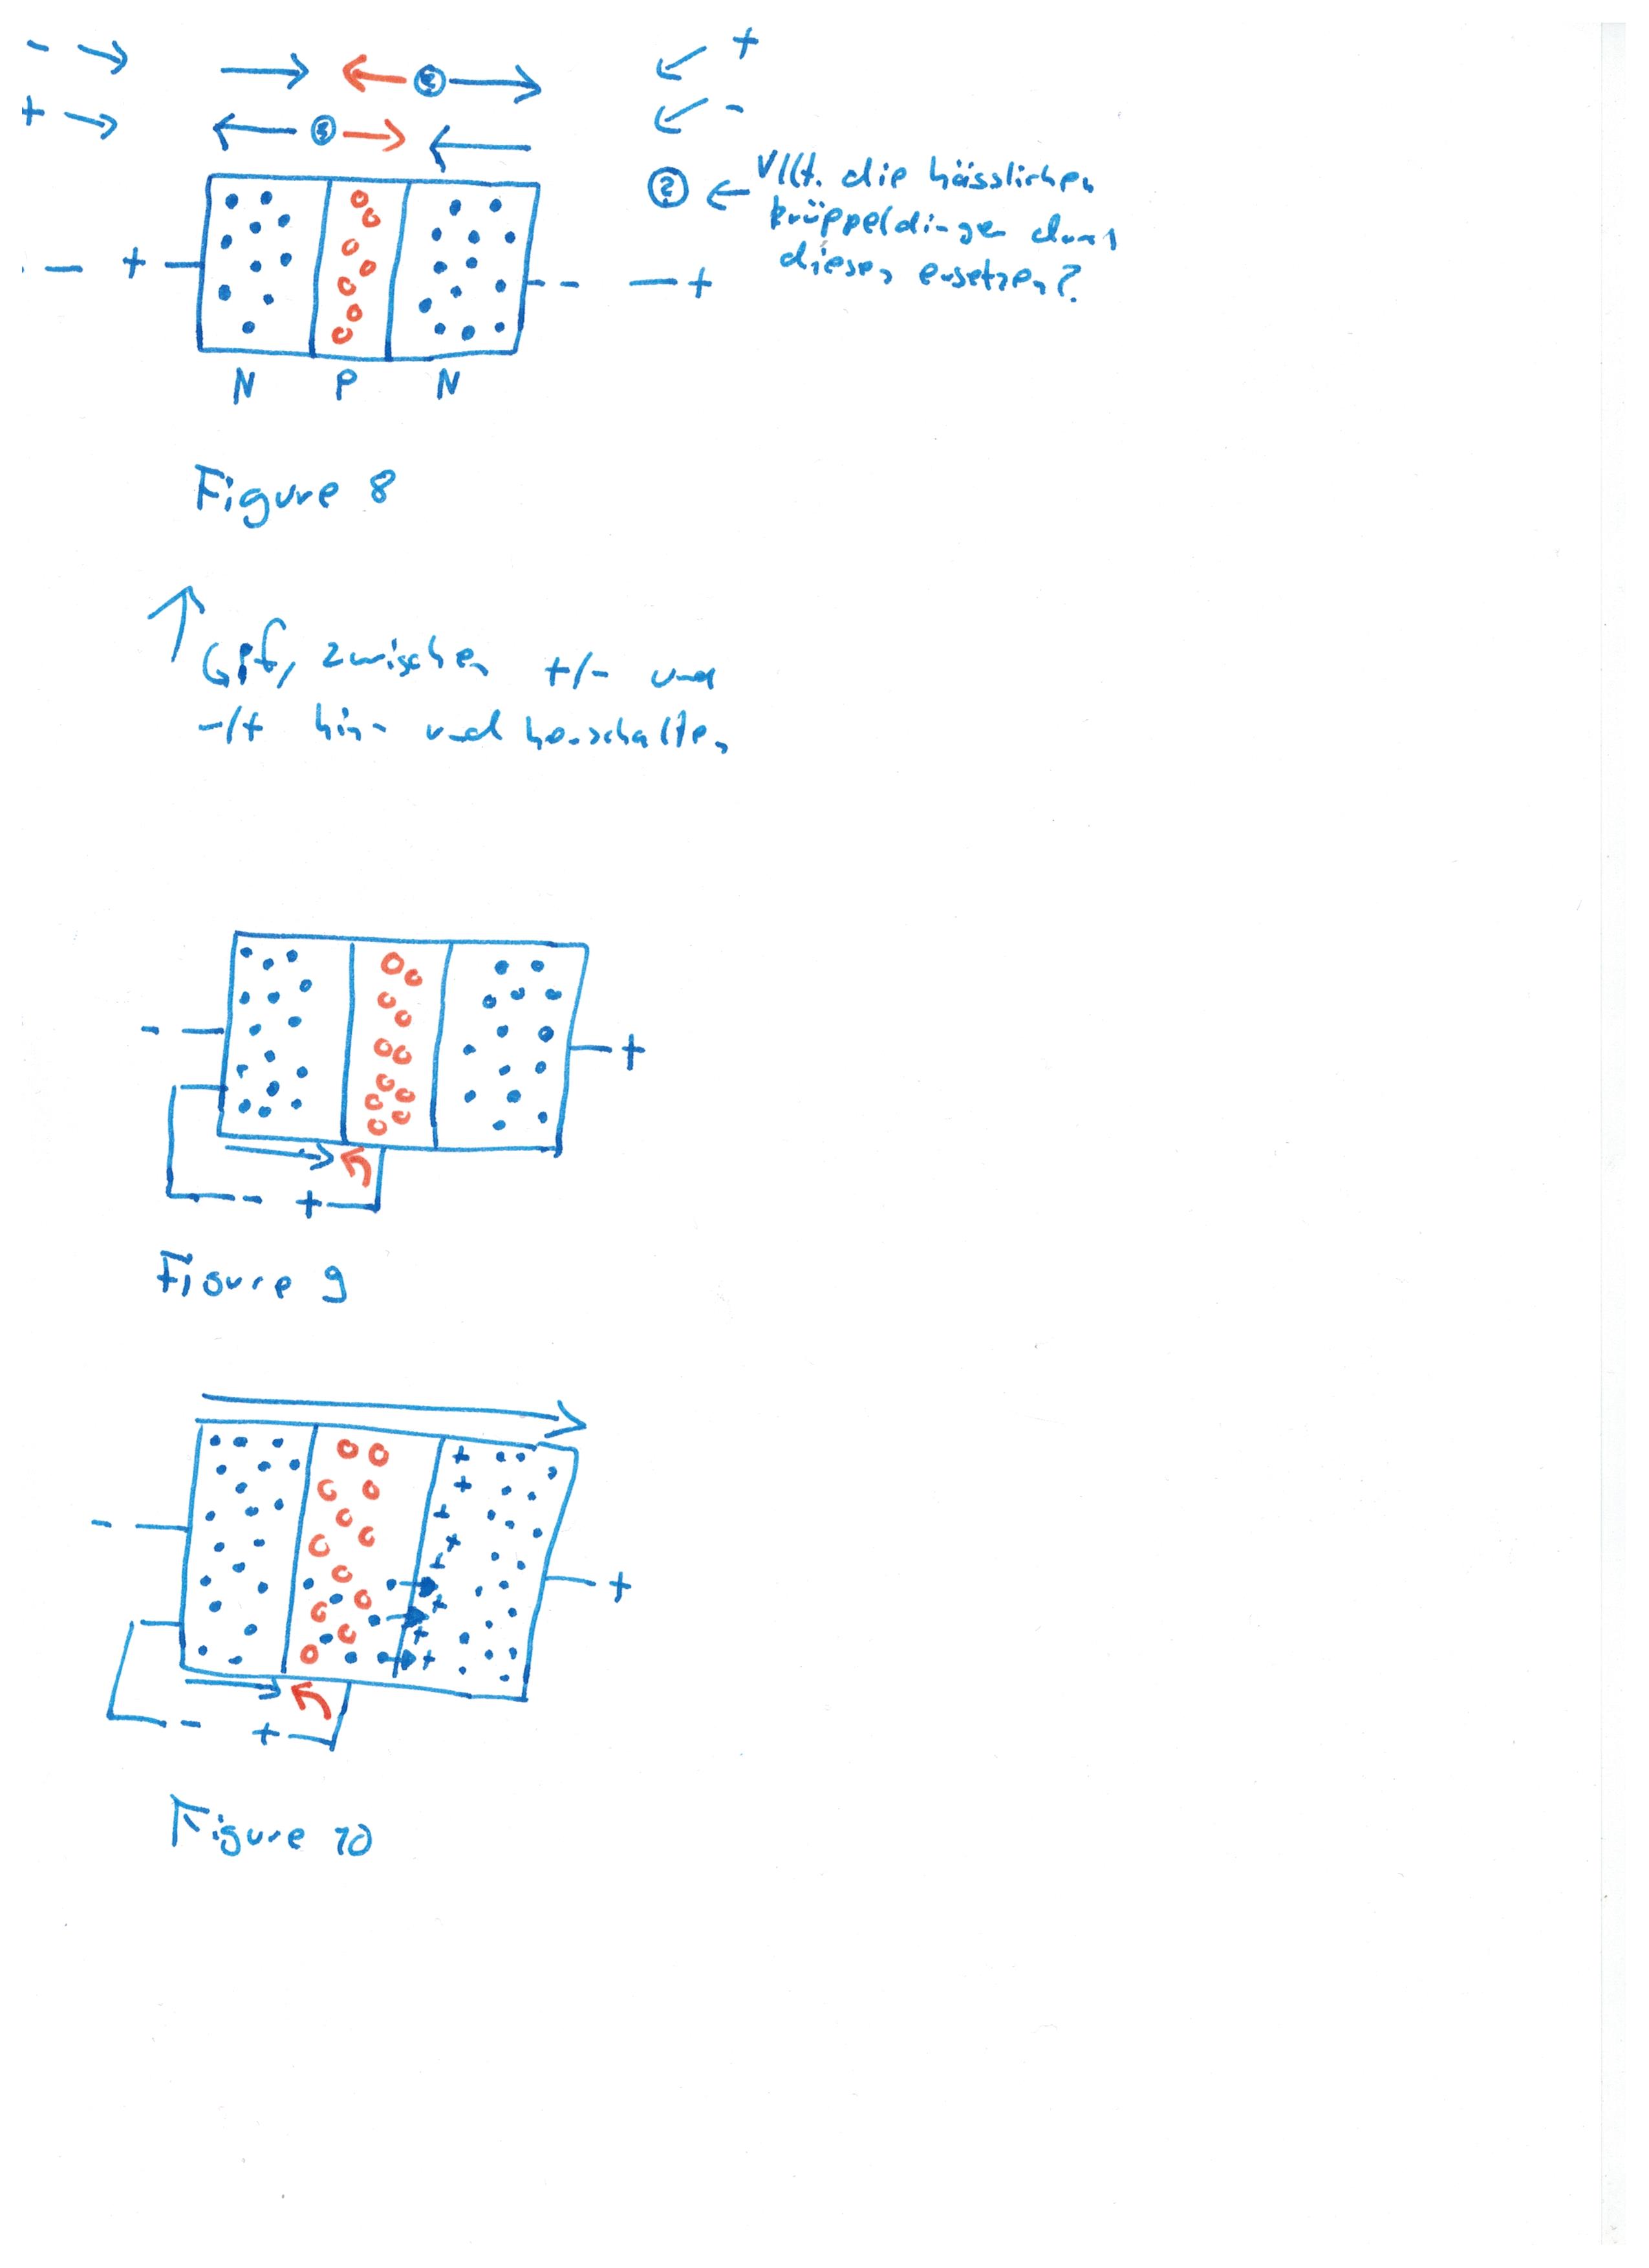 - → → ← ② → ← +
+ → ← ② → ← ← -
② ← Vllt. die hässlichen
krüppeldinger durch
diesen ersetzen?
- + - - +
N P N
Figure 8
↑
↳ pf, zwischen +/- und
-/+ hin- und herschalten
- +
- +
Figure 9
+
+
+
+
+
- +
+
+
+
- +
Figure 10